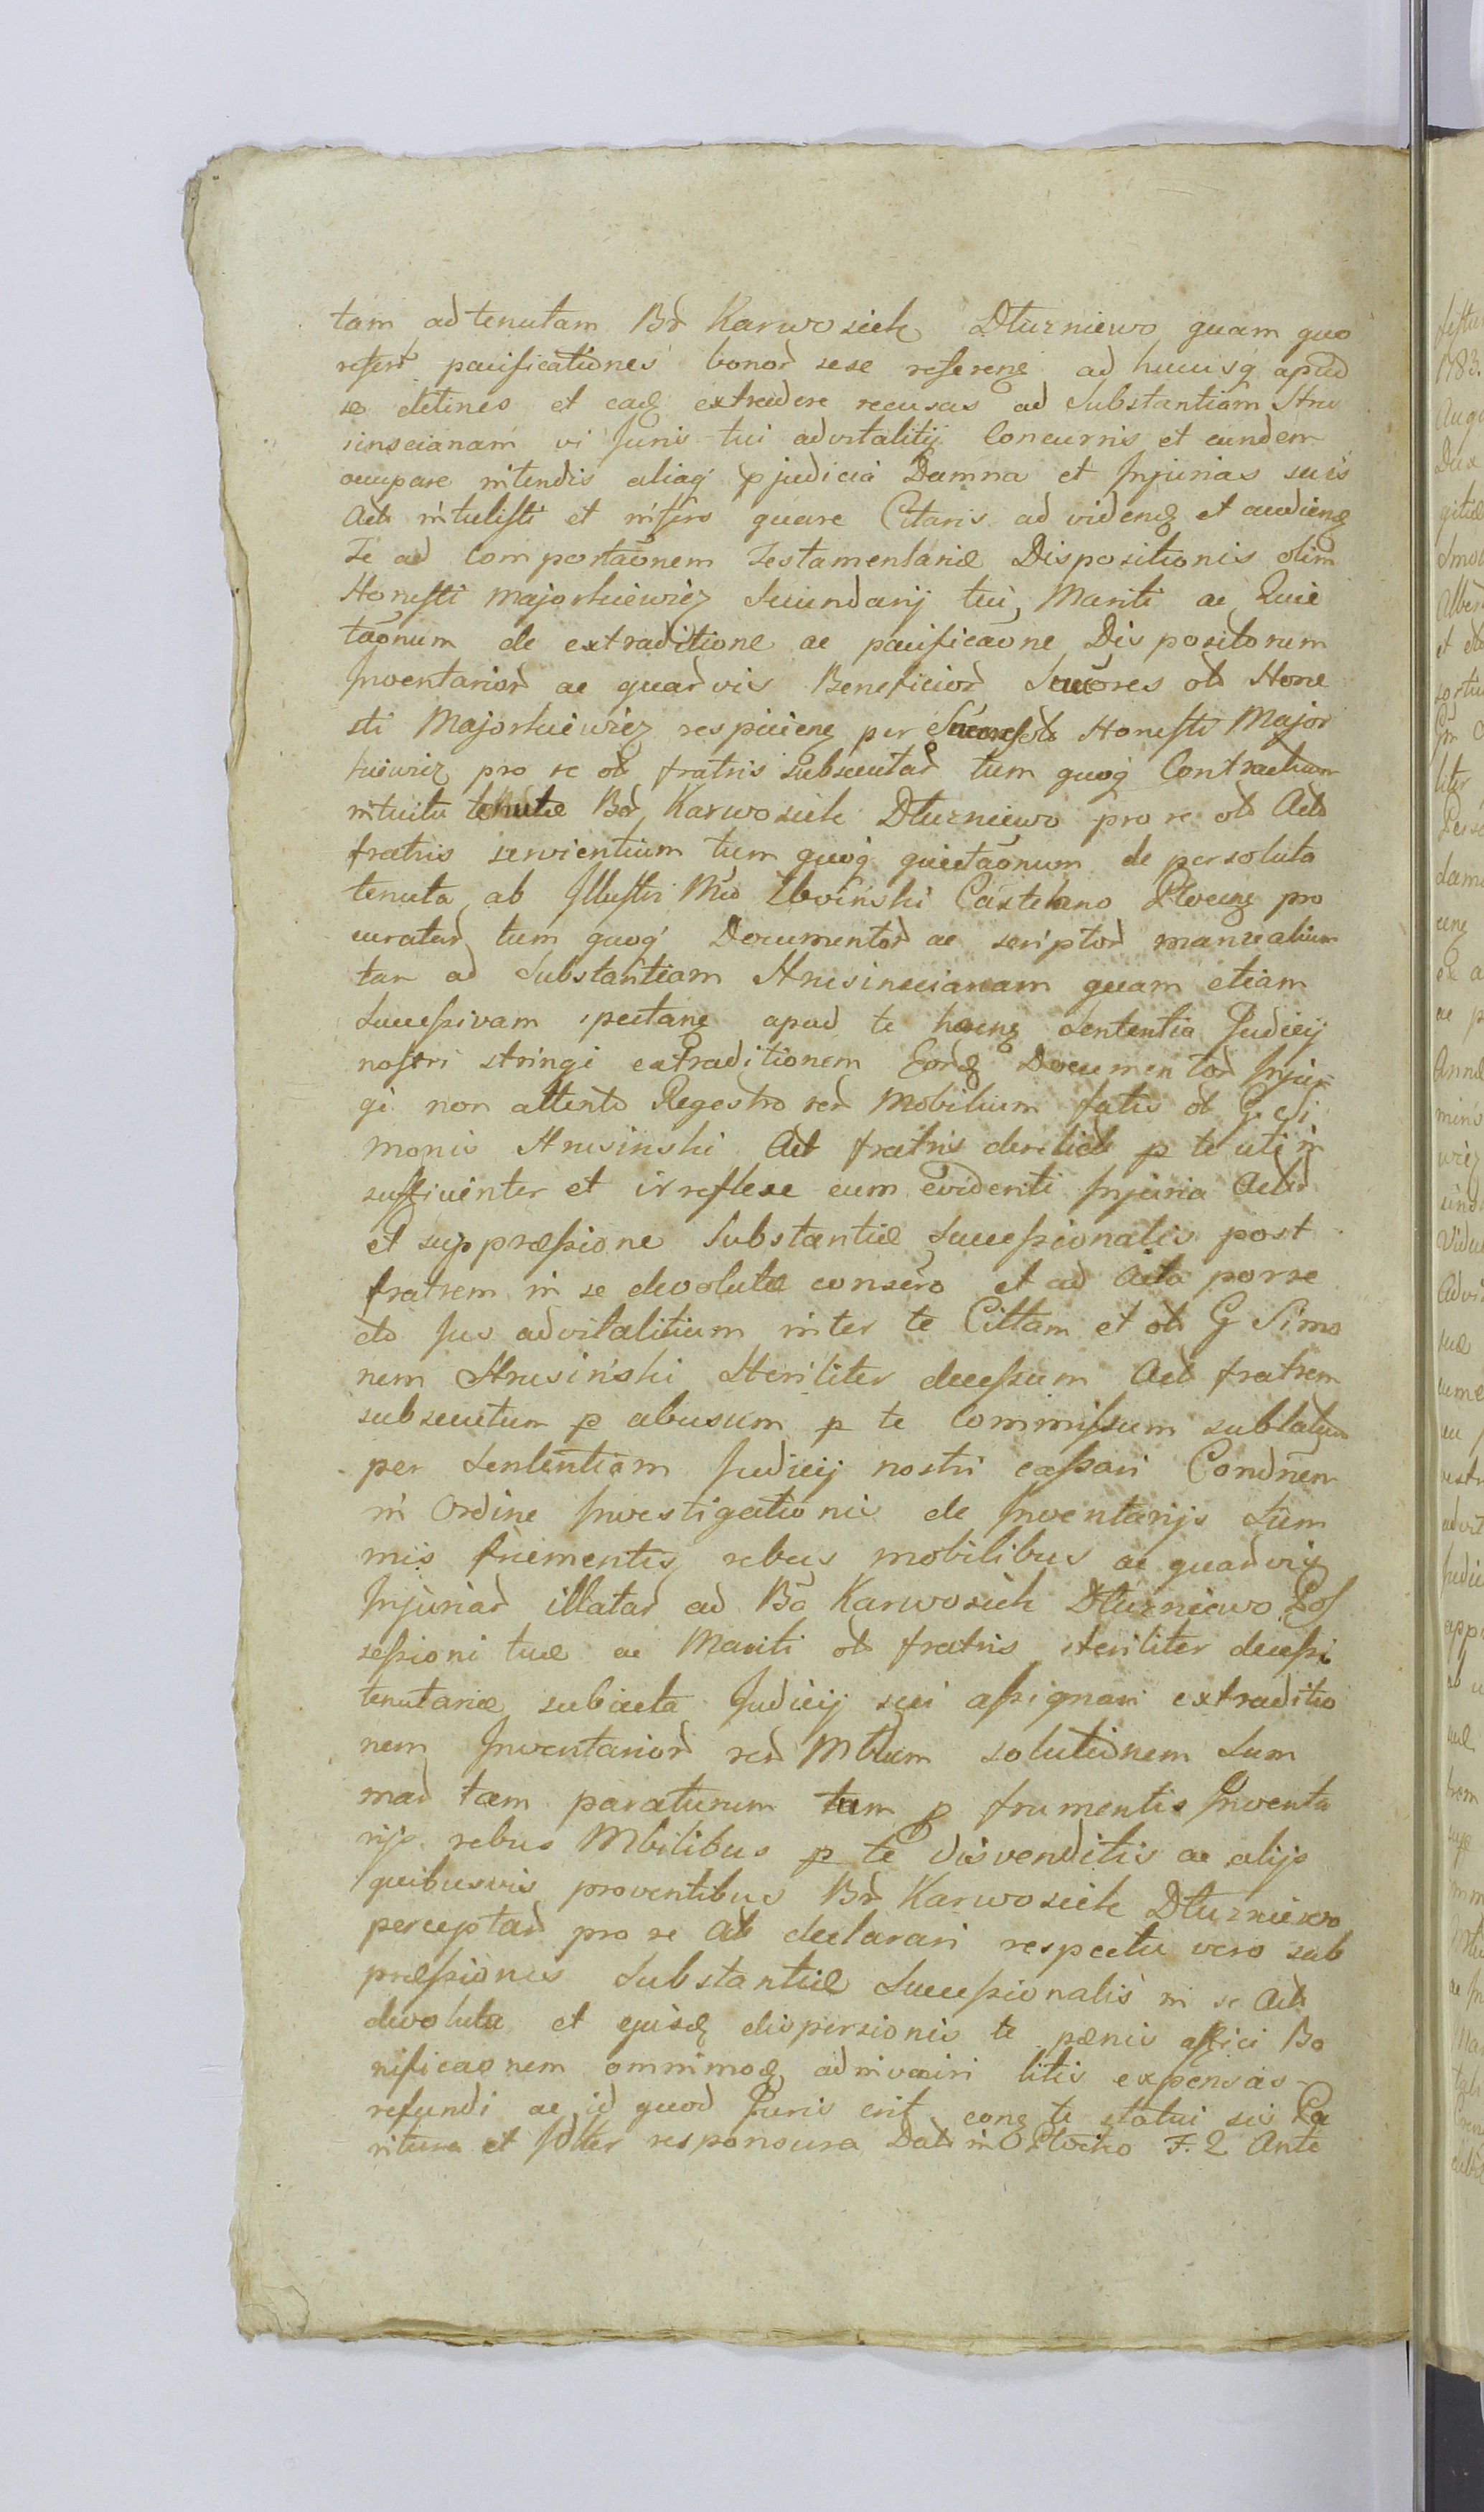 tam ad tenutam Bd Karwosiek Dłuzniewo quam quo
refert pacificationes bonod sese referenȩ ad hucusq̇ apud
se detines et eadȩ extradere recusas ad Substantiam Stru
sinscianam vi Juris tui advitalitij Concurris et eundem
occupare intendis aliaq̇ p̱judicia Damna et Injurias suis
Actt intulisti et infers quare Citaris ad videnȩ et audienȩ
Te ad comportãonem Testamentariæ Dispositionis olim
Honesti Majorkiewicz Secundarij tui Mariti ac Quie
tãonum de extraditione ac pacificãone Dispositorum
Inventariod ac quadvis Beneficiod Succores olt Hone
sti Majorkiewicz respicienȩ per olt Honesti Major
kiewicz pro re olt fratris subsecutad tum quoq̇ Contractum
intuitu tenutæ Bod Karwosiek Dłuzniewo pro re olt Actt
fratris servientium tum quoq̇ quietãonum de persoluta
tenuta ab Illustri Mco Zboinski Castelano Plocenȩ pro
curatad tum quoq̇ Documentod ac scriptod manualium
tam ad Substantiam Strusinscianam quam etiam
Successivam spectanȩ apud te harenȩ Sententia Judicij
nostri stringi extraditionem Eordȩ Documentod Injun=
gi non attento Regestro red Mobilium fatis olt G Si
monis Strusinski Actt fratris derelictt p̱ te uti in
sufficienter et irreflexe cum evidenti Injuria Actd
et suppræssione Substantiæ Successionalis post
fratrem in se devolutæ conscro et ad Acta porre
cto Jus advitalitium inter te Cittam et olt G Simo
nem Strusinski Steriliter decessum Actt fratrem
subsecutum p̱ abusum p̱ te Commissum sublatum
per Sententiam Judicij nostri cassari Condnem
in Ordine Investigationis de Inventarijs Sum
mis frumentis rebus mobilibus ac quadvis
Injuriad illatad ad Bã Karwosiek Dłuzniewo Pos
sessioni tuæ ac Mariti olt fratris steriliter decessi
tenutariæ subacta Judicij sui assignari extraditio
nem Inventariod red Mblium solutionem Sum
mad tam paratarum tam p̱ frumentis Inventa
rijs rebus Mbilibus p̱ te disvenditis ac alijs
quibusvis proventibus Bd Karwosiek Dłuzniewo
perceptad pro re Actt declarari respectu vero sub
præssionis Substantiæ Successionalis in se Actt
devoluta et ejusdȩ dispersionis te pænis affici Bo
nificaonem ommimodȩ adinvairi litis expensas
refundi ac id quod Juris erit conȩ te statui sis Pa
ritura et Jdlter responsura Datt in Plocko F. 2 Ante